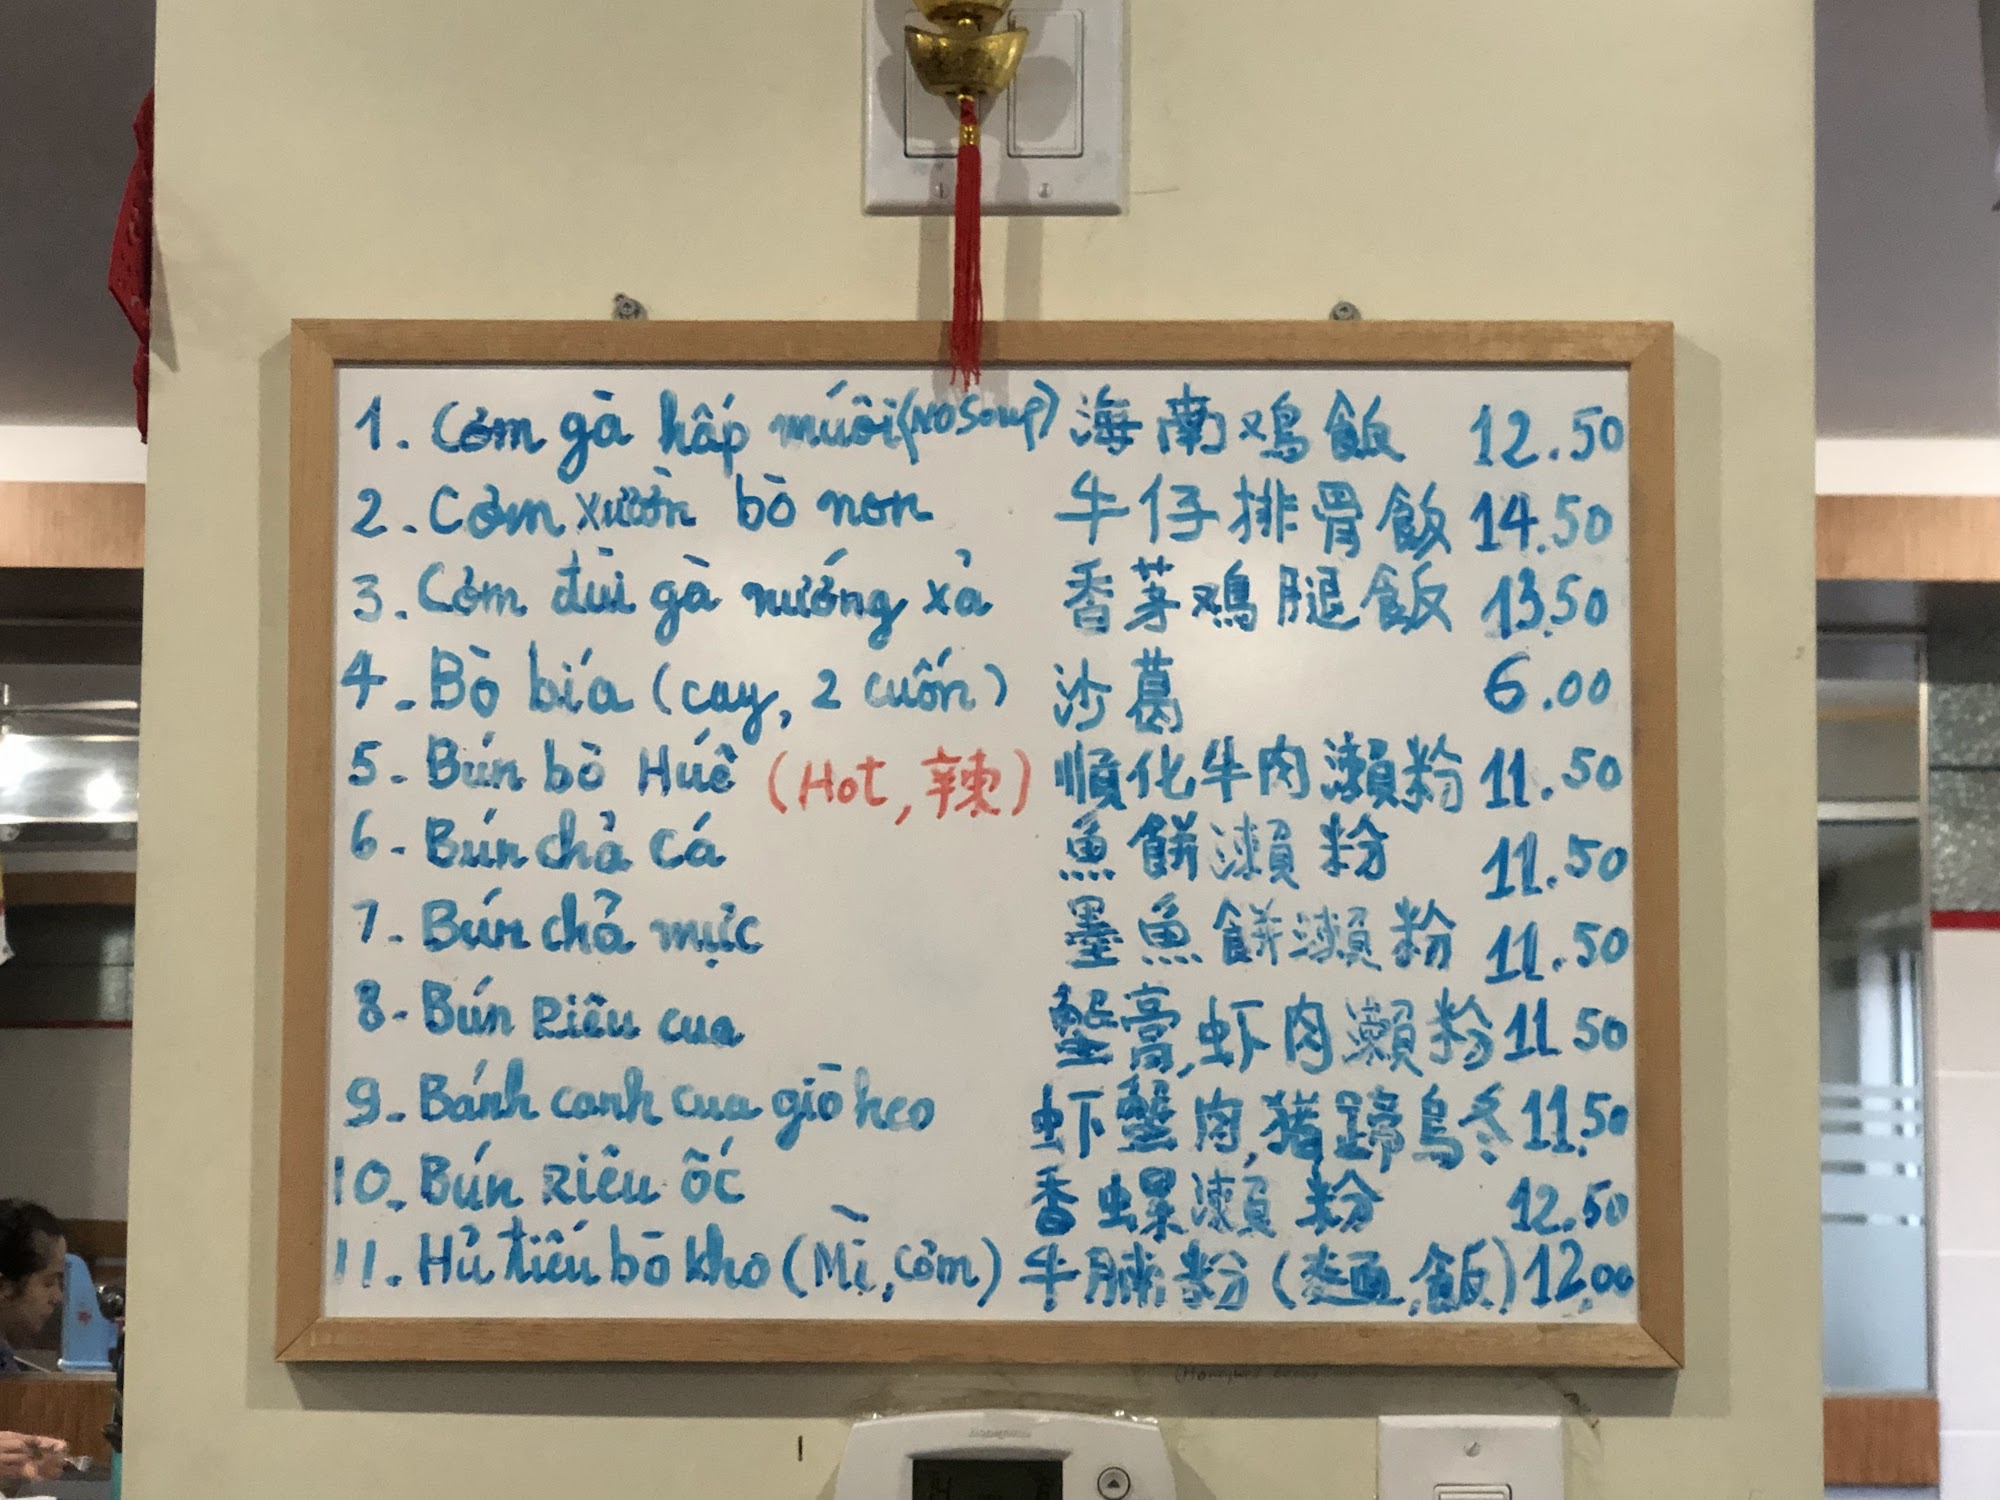 1. Cơm gà hấp múôi (NO Soup) 海南鸡飯 12.50
2. Cơm xườn bò non 牛仔排骨飯 14.50
3. Cơm đùi gà nướng xả 香茅鸡腿飯 13.50
4. Bò bía (cay, 2 cuốn) 沙葛 6.00
5. Bún bò Huế (Hot, 辣) 順化牛肉瀨粉 11.50
6. Bún chả cá 魚餅瀨粉 11.50
7. Bún chả mực 墨魚餅瀨粉 11.50
8. Bún Riêu cua 蟹膏,虾肉瀨粉 11.50
9. Bánh canh cua giò heo 虾蟹肉,猪蹄烏冬 11.50
10. Bún Riêu ốc 香螺瀨粉 12.50
11. Hủ tiếu bò kho (Mì, cơm) 牛腩粉 (麵,飯) 12.00